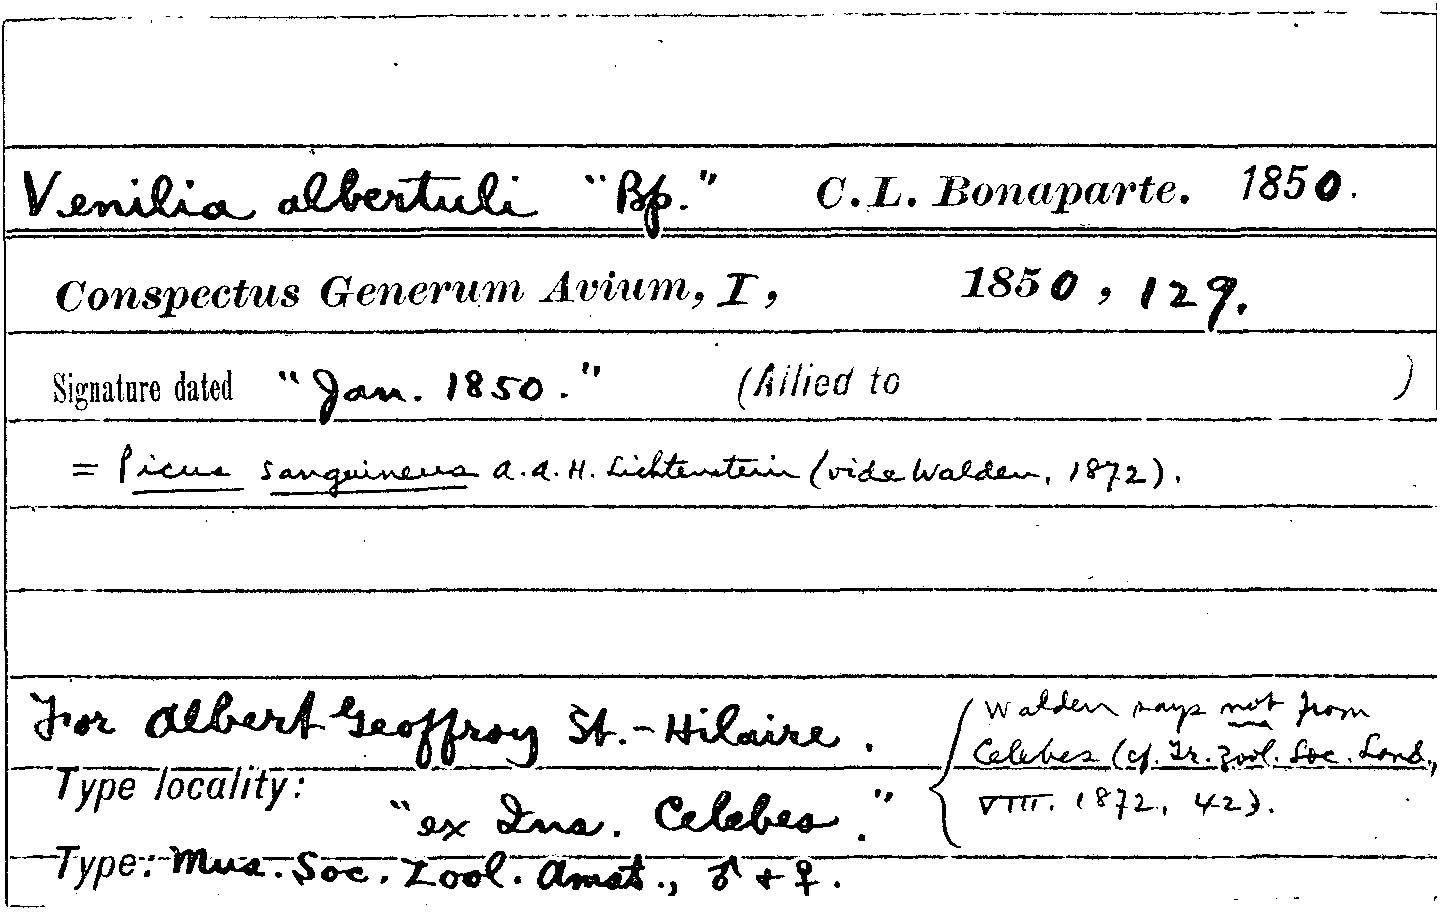 Venilia albertuli "Bp." C.L. Bonaparte. 1850.
Conspectus Generum Avium, I, 1850, 129.
Signature dated "Jan. 1850." (Allied to )
= Picus sanguineus A.A.H. Lichtenstein (vide Walden, 1872).
For Albert Geoffroy St.-Hilaire.
Type locality: "ex Ins. Celebes."
{Walden says not from
Celebes (cf. Tr. Zool. Soc. Lond.,
VIII. 1872, 42).
Type: Mus. Soc. Zool. Amst., ♂ + ♀.